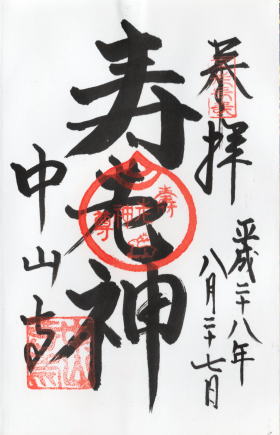 奉拝
平成二十八年
八月二十七日
寿老神
中山寺